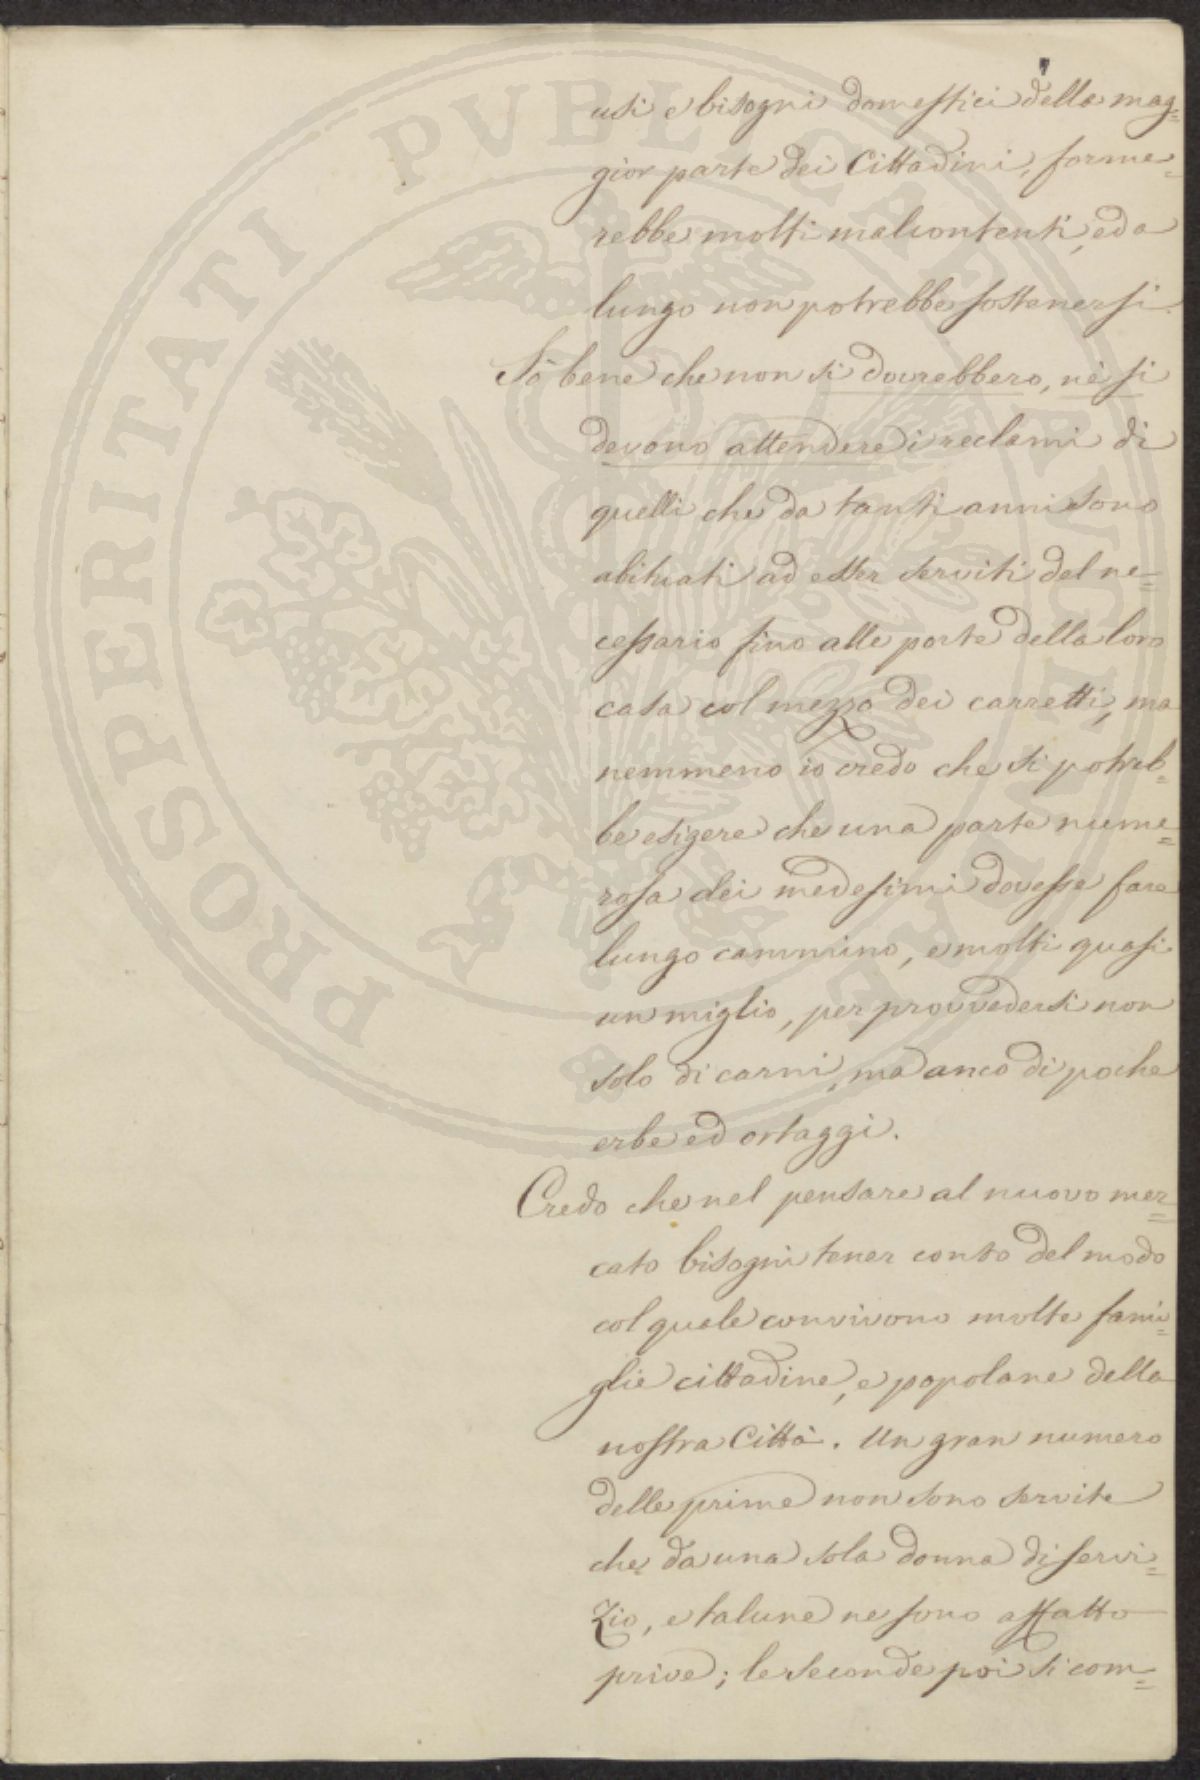 usi e bisogni domestici della mag=
gior parte dei Cittadini, forme=
rebbe molti malcontenti, ed a
lungo non potrebbe sostenersi.
Sò bene che non si dovrebbero, nè si
devono attendere i reclami di
quelli che da tanti anni sono
abituati ad esser serviti del ne=
cessario fino alle porte della loro
casa col mezzo dei carretti, ma
nemmeno io credo che si potreb=
be esigere che una parte nume=
rosa dei medesimi dovesse fare
lungo cammino, e molti quasi
un miglio, per provvedersi non
solo di carni, ma anco di poche
erbe ed ortaggi.
Credo che nel pensare al nuovo mer=
cato bisogni tener conto del modo
col quale convivono molte fami=
glie cittadine, e popolane della
nostra Città. Un gran numero
delle prime non sono servite
che da una sola donna di servi=
zio, e talune ne sono affatto
prive; le seconde poi si com=
PROSPERITATI PVBLICAE AVGENDAE